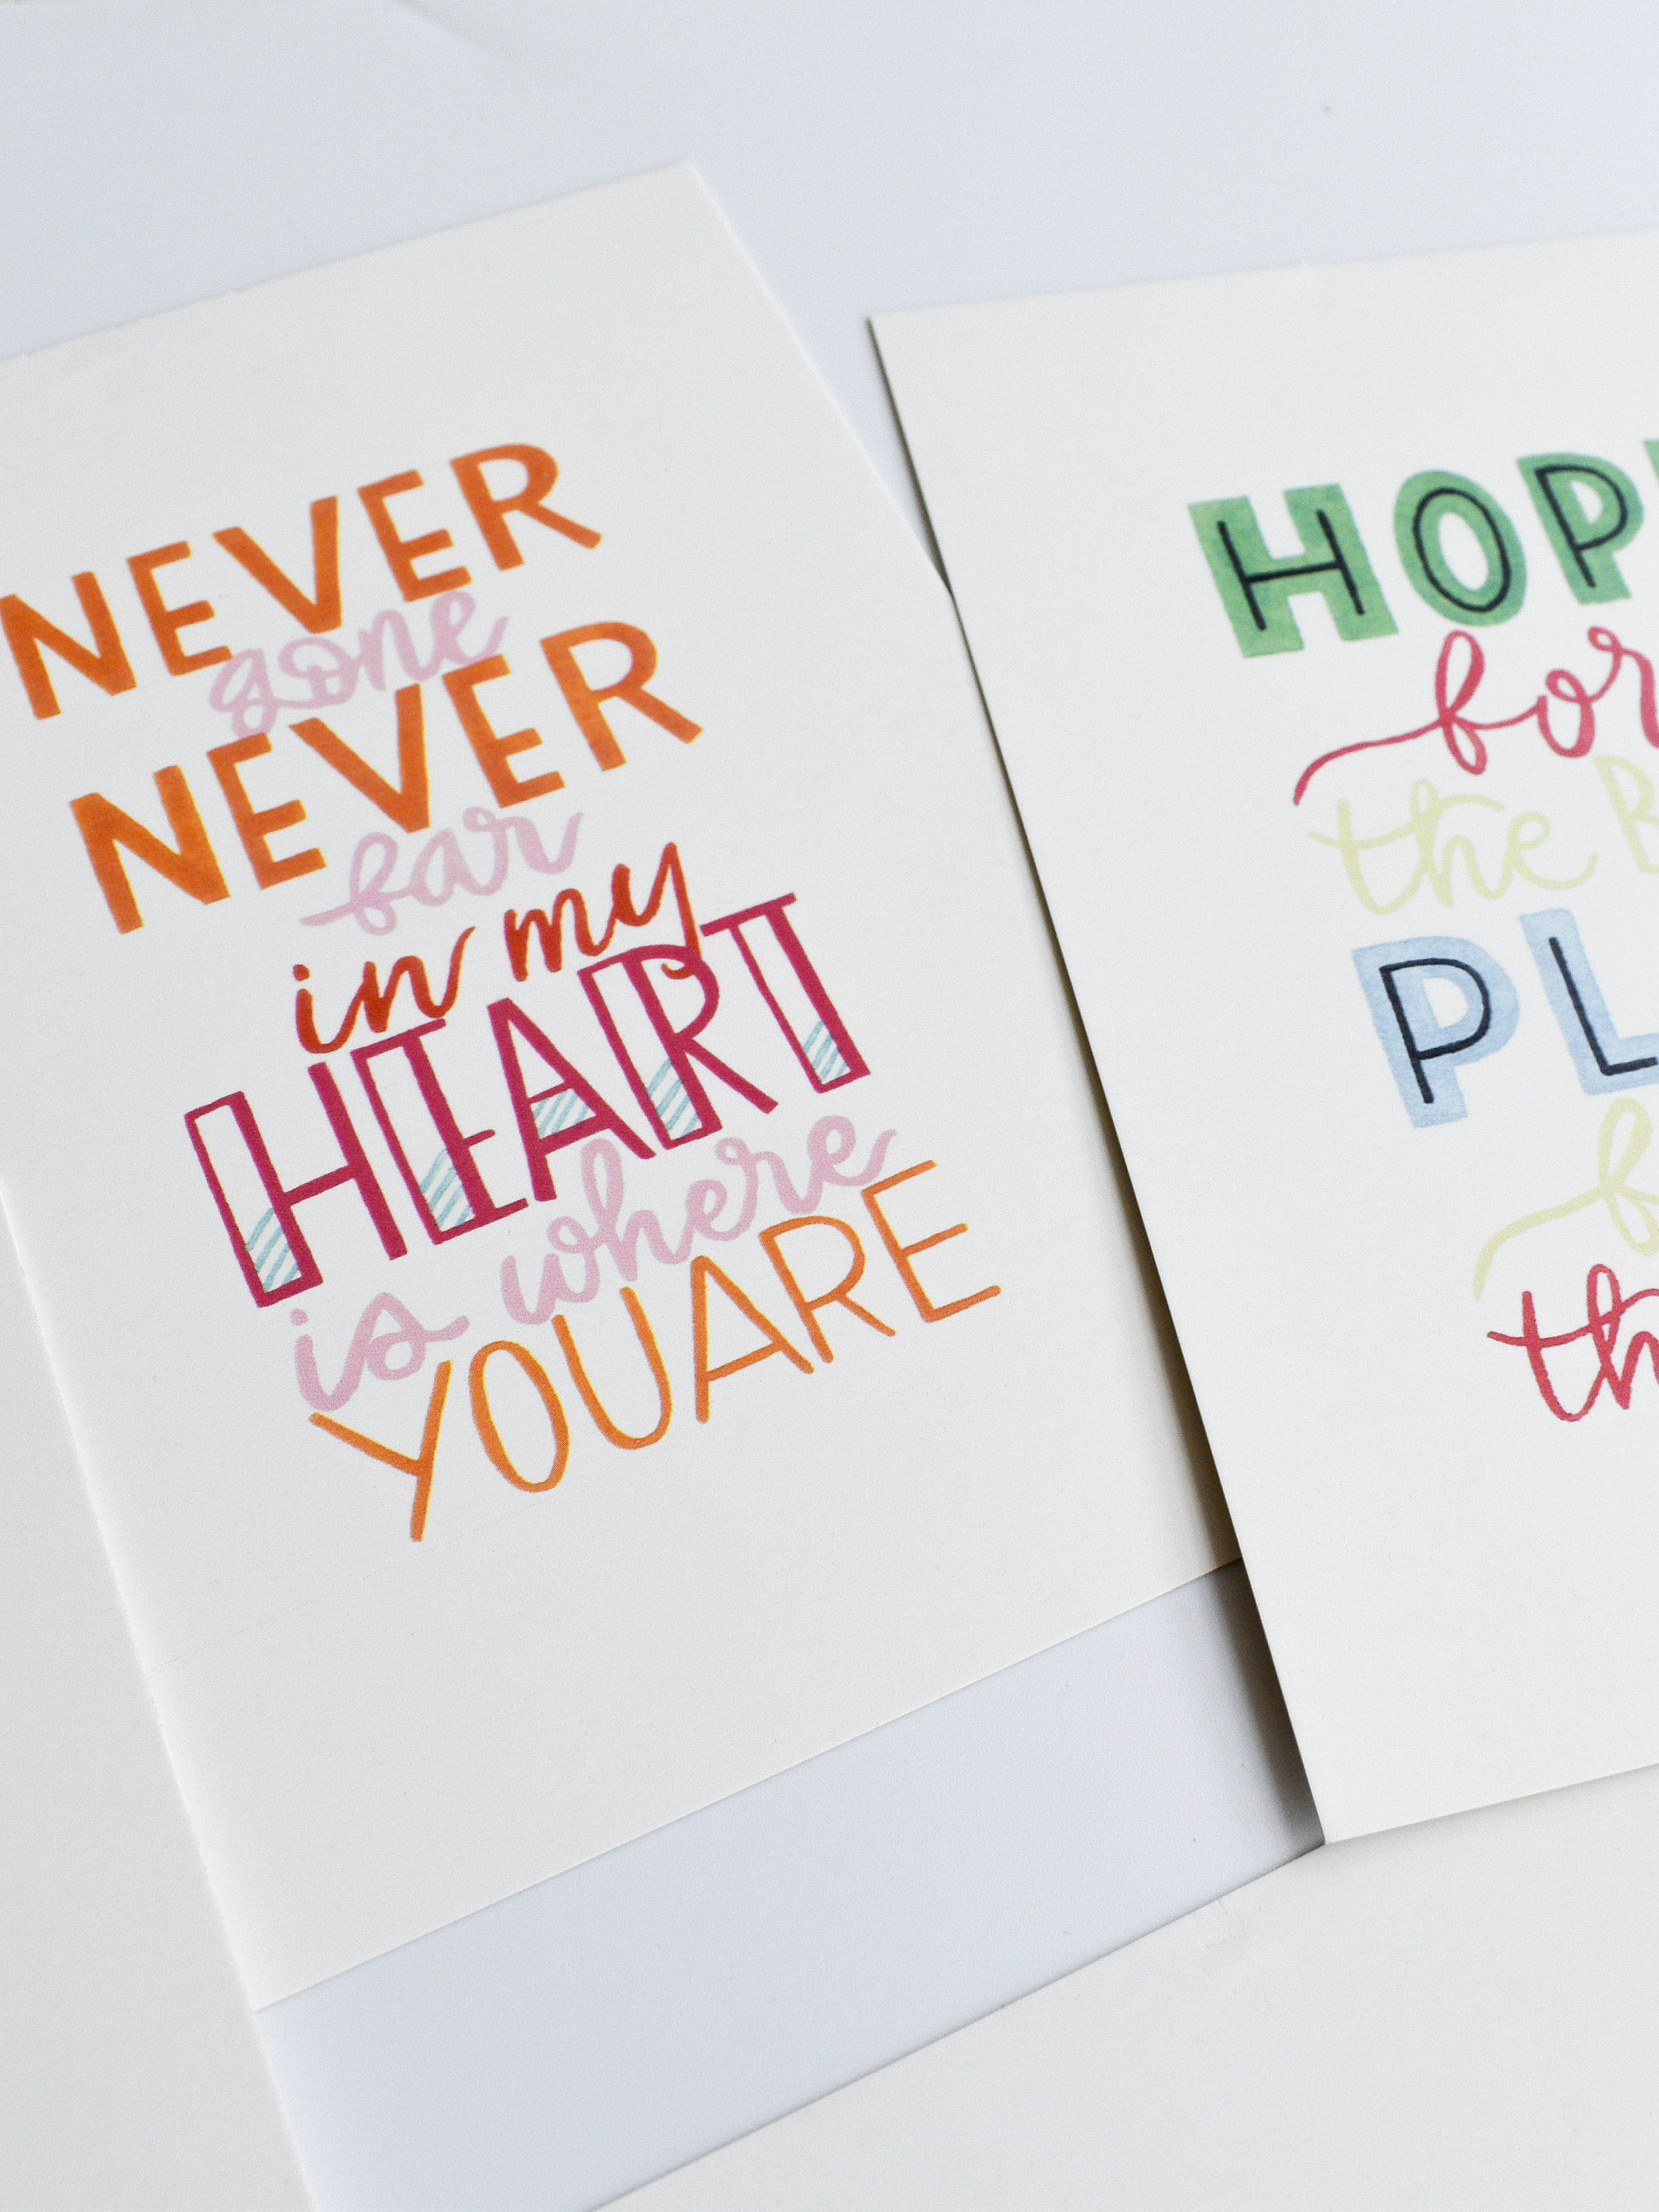 NEVER
gone
NEVER
far
in my
HEART
is where
YOU ARE
HOP
for
the B
PL
f
th